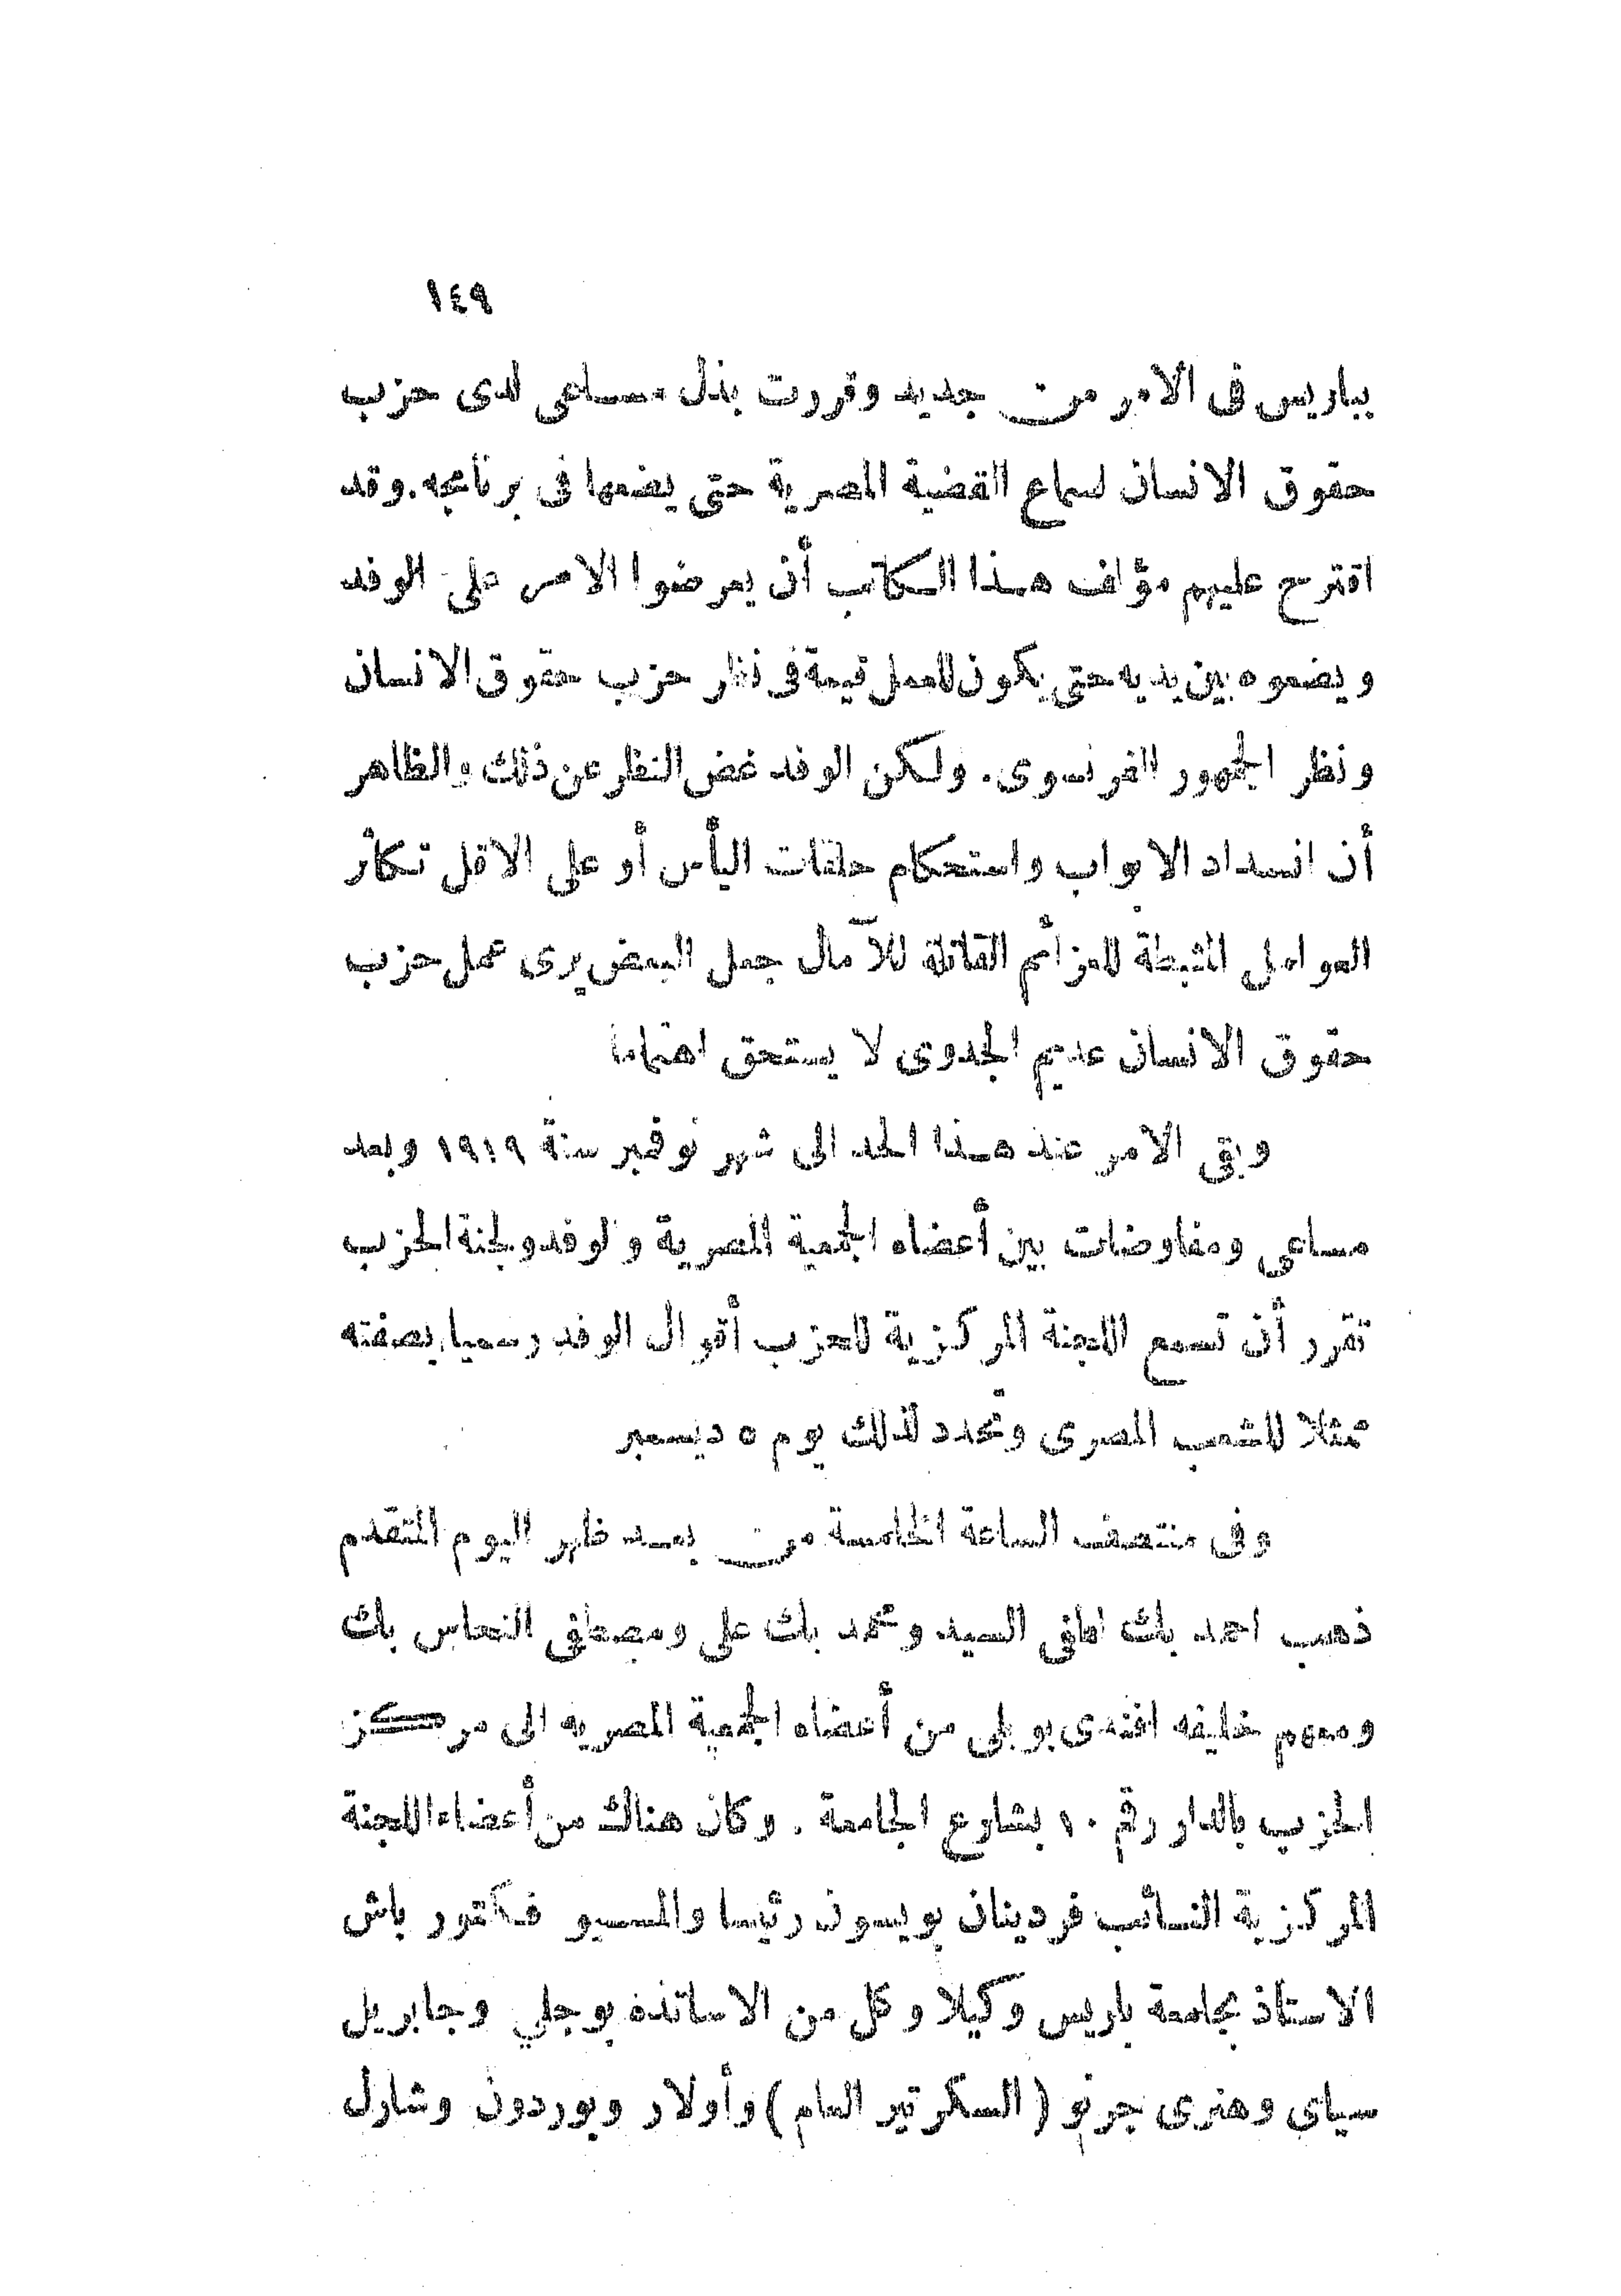 ١٤٩
بباريس فى الامر من جديد وقررت بذل مساعى لدى حزب
حقوق الانسان لسماع القضية المصرية حتى يضمها فى برنامجه . وقد
اقترح عليهم مؤلف هذا الكتاب أن يعرضوا الامر على الوفد
ويضعوه بين يديه حتى يكون للعمل قيمة فى نظر حزب حقوق الانسان
ونظر الجمهور الفرنسوى . ولكن الوفد غض النظر عن ذلك والظاهر
أن انسداد الابواب واستحكام حلقات اليأس أو على الاقل تكاثر
العوامل المثبطة للعزائم القاتلة للآمال جعل البعض يرى عمل حزب
حقوق الانسان عديم الجدوى لا يستحق اهتماما
وبقى الامر عند هذا الحد الى شهر نوفمبر سنة ١٩١٩ وبعد
مساعى ومفاوضات بين أعضاء الجمعية المصرية والوفد ولجنة الحزب
تقرر أن تسمع اللجنة المركزية للحزب أقوال الوفد رسميا بصفته
ممثلا للشعب المصرى وتحدد لذلك يوم ٥ ديسمبر
وفى منتصف الساعة الخامسة من بعد ظهر اليوم المتقدم
ذهب احمد بك لطفى السيد ومحمد بك على ومصطفى النحاس بك
ومعهم خليفه افندى بوبلى من أعضاء الجمعية المصريه الى مركز
الحزب بالدار رقم ١٠ بشارع الجامعة . وكان هناك من أعضاء اللجنة
المركزية النائب فردينان بويسون رئيسا والمسيو فكتور باش
الاستاذ بجامعة باريس وكيلا وكل من الاساتذه بوجلي وجابريل
سياى وهنرى جرنو ( السكرتير العام ) وأولار وبوردون وشارل